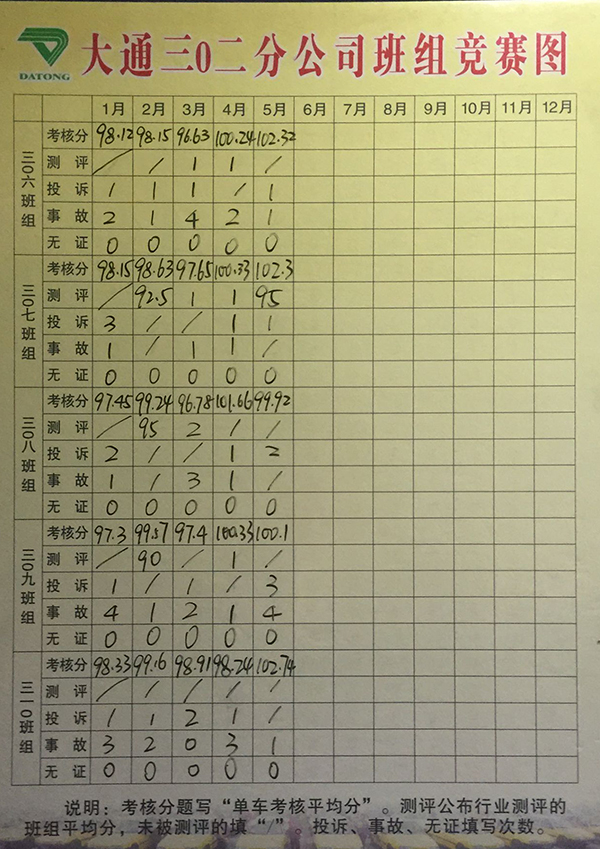 DATONG
大通三0二分公司班组竞赛图
1月 2月 3月 4月 5月 6月 7月 8月 9月 10月 11月 12月
三0六班组
考核分 98.12 98.15 96.63 100.24 102.32
测评 / / 1 1 /
投诉 / 1 1 / 1
事故 2 1 4 2 1
无证 0 0 0 0 0
三0七班组
考核分 98.15 98.63 97.65 100.33 102.3
测评 / 92.5 1 1 95
投诉 3 / / 1 1
事故 1 / 1 1 /
无证 0 0 0 0 0
三0八班组
考核分 97.45 99.24 96.78 101.66 99.92
测评 / 95 2 / /
投诉 2 / / 1 2
事故 1 / 3 1 /
无证 0 0 0 0 0
三0九班组
考核分 97.3 99.57 97.4 100.33 100.1
测评 / 90 / 1 /
投诉 1 / 1 / 3
事故 4 1 2 1 4
无证 0 0 0 0 0
三一0班组
考核分 98.33 99.16 98.91 98.24 102.74
测评 / / / / /
投诉 1 1 2 1 /
事故 3 2 0 3 1
无证 0 0 0 0 0
说明：考核分题写“单车考核平均分”。测评公布行业测评的
班组平均分，未被测评的填“/”。投诉、事故、无证填写次数。